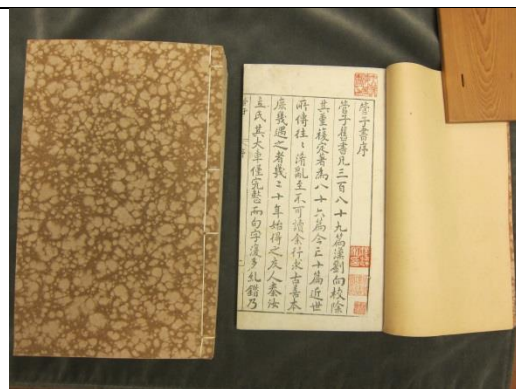 管子書序
管子舊書凡三百八十九篇漢劉向校除
其重複定著為八十六篇今亡十篇近世
所傳往〻淆亂至不可讀余行求古善本
庶幾遇之者幾二十年始得之友人秦汝
立氏其大章僅完整而句字復多糺錯乃